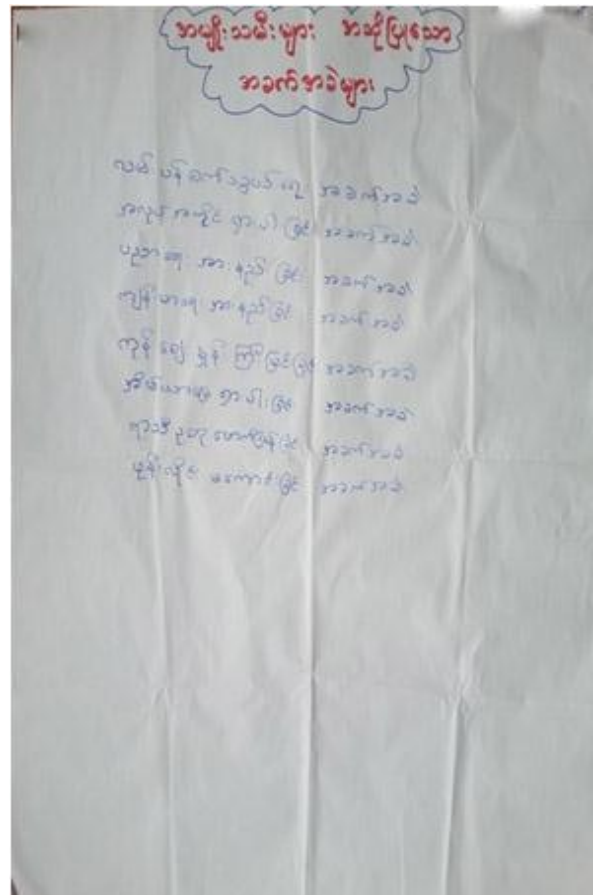 အမျိုးသမီးများ အဆိုပြုသော
အခက်အခဲများ
လမ်းပန်းဆက်သွယ်ရေး အခက်အခဲ
အလုပ်အကိုင် ရှားပါးခြင်း အခက်အခဲ
ပညာရေး အားနည်းခြင်း အခက်အခဲ
ကျန်းမာရေး အားနည်းခြင်း အခက်အခဲ
ကုန်ဈေးနှုန်း ကြီးမြင့်ခြင်း အခက်အခဲ
ရှားပါးခြင်း အခက်အခဲ
ရာသီဥတု ဖောက်ပြန်ခြင်း အခက်အခဲ
ဖုန်းလိုင်း မကောင်းခြင်း အခက်အခဲ